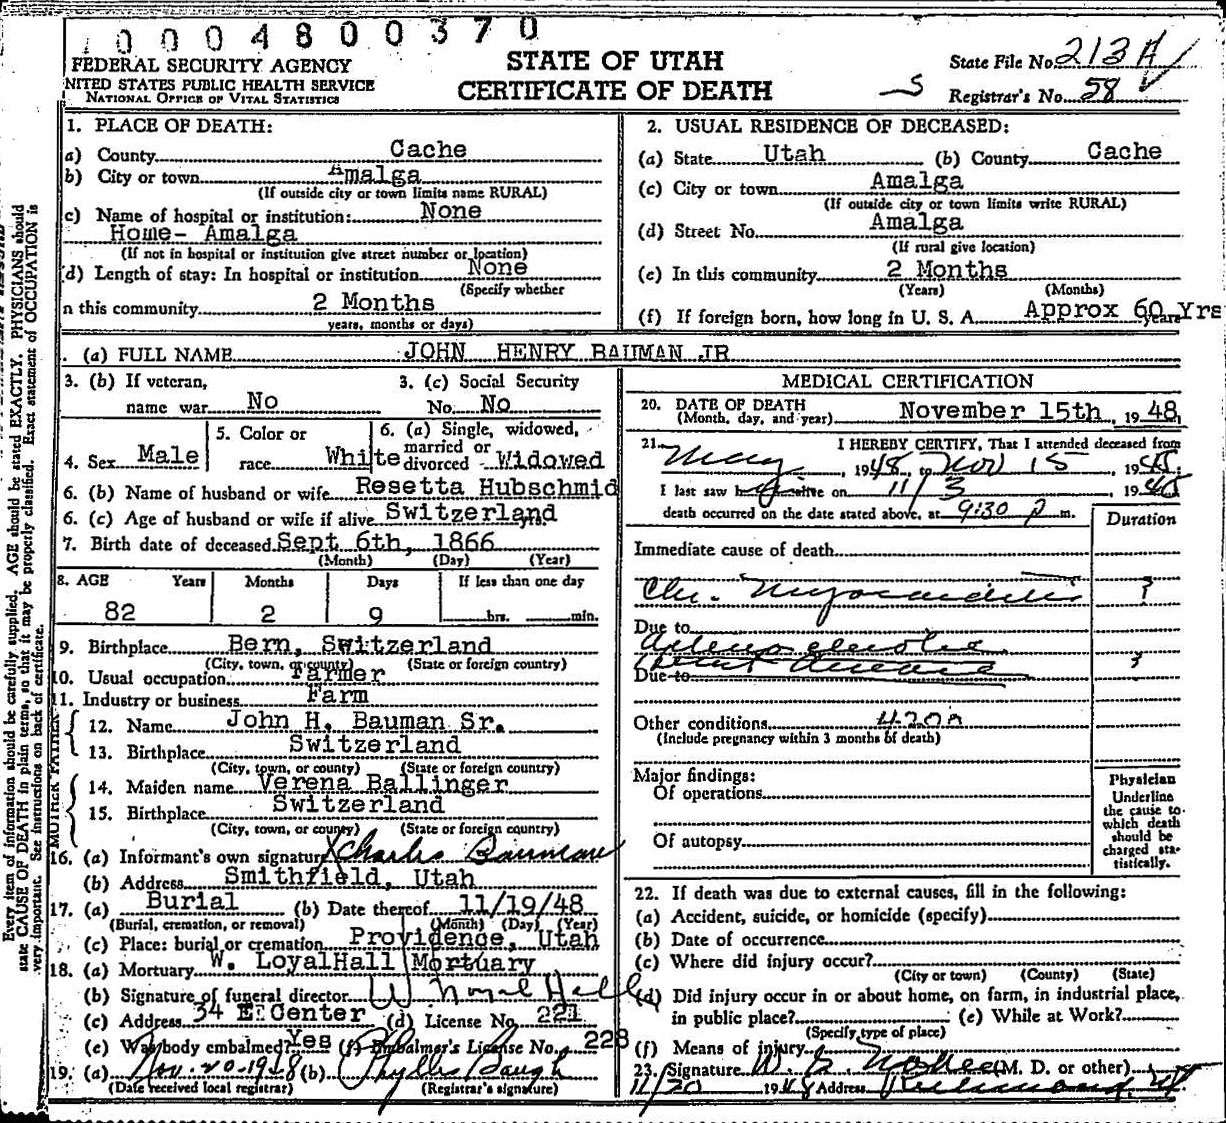 0004800370
FEDERAL SECURITY AGENCY
NITED STATES PUBLIC HEALTH SERVICE
NATIONAL OFFICE OF VITAL STATISTICS
STATE OF UTAH
CERTIFICATE OF DEATH
S
State File No. 213 A
Registrar's No. 58
Every item of information should be carefully supplied. AGE should be stated EXACTLY. PHYSICIANS should
state CAUSE OF DEATH in plain terms, so that it may be properly classified. Exact statement of OCCUPATION is
very important. See instructions on back of certificate.
1. PLACE OF DEATH:
a) County Cache
b) City or town Amalga
(If outside city or town limits name RURAL)
c) Name of hospital or institution: None
Home- Amalga
(If not in hospital or institution give street number or location)
d) Length of stay: In hospital or institution None
(Specify whether
n this community 2 Months
years, months or days)
2. USUAL RESIDENCE OF DECEASED:
(a) State Utah (b) County Cache
(c) City or town Amalga
(If outside city or town limits write RURAL)
(d) Street No. Amalga
(If rural give location)
(e) In this community 2 Months
(Years) (Months)
(f) If foreign born, how long in U. S. A. Approx 60 Yrs years
. (a) FULL NAME JOHN HENRY BAUMAN JR
3. (b) If veteran, 3. (c) Social Security
name war No No. No
4. Sex Male 5. Color or race White 6. (a) Single, widowed, married or divorced Widowed
6. (b) Name of husband or wife Resetta Hubschmid
6. (c) Age of husband or wife if alive Switzerland yrs.
7. Birth date of deceased Sept 6th, 1866
(Month) (Day) (Year)
8. AGE Years Months Days If less than one day
82 2 9 hrs. min.
9. Birthplace Bern, Switzerland
(City, town, or county) (State or foreign country)
10. Usual occupation Farmer
11. Industry or business Farm
FATHER
12. Name John H. Bauman Sr.
13. Birthplace Switzerland
(City, town, or county) (State or foreign country)
MOTHER
14. Maiden name Verena Ballinger
15. Birthplace Switzerland
(City, town, or county) (State or foreign country)
16. (a) Informant's own signature X Charles Bauman
(b) Address Smithfield, Utah
17. (a) Burial (b) Date thereof 11/19/48
(Burial, cremation, or removal) (Month) (Day) (Year)
(c) Place: burial or cremation Providence, Utah
18. (a) Mortuary W. LoyalHall Mortuary
(b) Signature of funeral director W Loyal Hall
(c) Address 34 E. Center (d) License No. 221
(e) Was body embalmed? Yes (f) Embalmer's License No. 228
19. (a) Nov. 20-1948 (b) Phyllis Baugh
(Date received local registrar) (Registrar's signature)
MEDICAL CERTIFICATION
20. DATE OF DEATH
(Month, day, and year) November 15th, 1948
21. I HEREBY CERTIFY, That I attended deceased from
May, 1948, to Nov 15, 1948.
I last saw h alive on 11/3 1948
death occurred on the date stated above, at 9:30 p m.
Duration
Immediate cause of death
Chr. Myocarditis ?
Due to
Arteriosclerotic
Heart Disease ?
Due to
Other conditions 420a
(Include pregnancy within 3 months of death)
Major findings:
Of operations
Of autopsy
Physician
Underline
the cause to
which death
should be
charged sta-
tistically.
22. If death was due to external causes, fill in the following:
(a) Accident, suicide, or homicide (specify)
(b) Date of occurrence
(c) Where did injury occur?
(City or town) (County) (State)
(d) Did injury occur in or about home, on farm, in industrial place,
in public place? (e) While at Work?
(Specify type of place)
(f) Means of injury
23. Signature (M. D. or other)
11/20 1948 Address Richmond, Ut